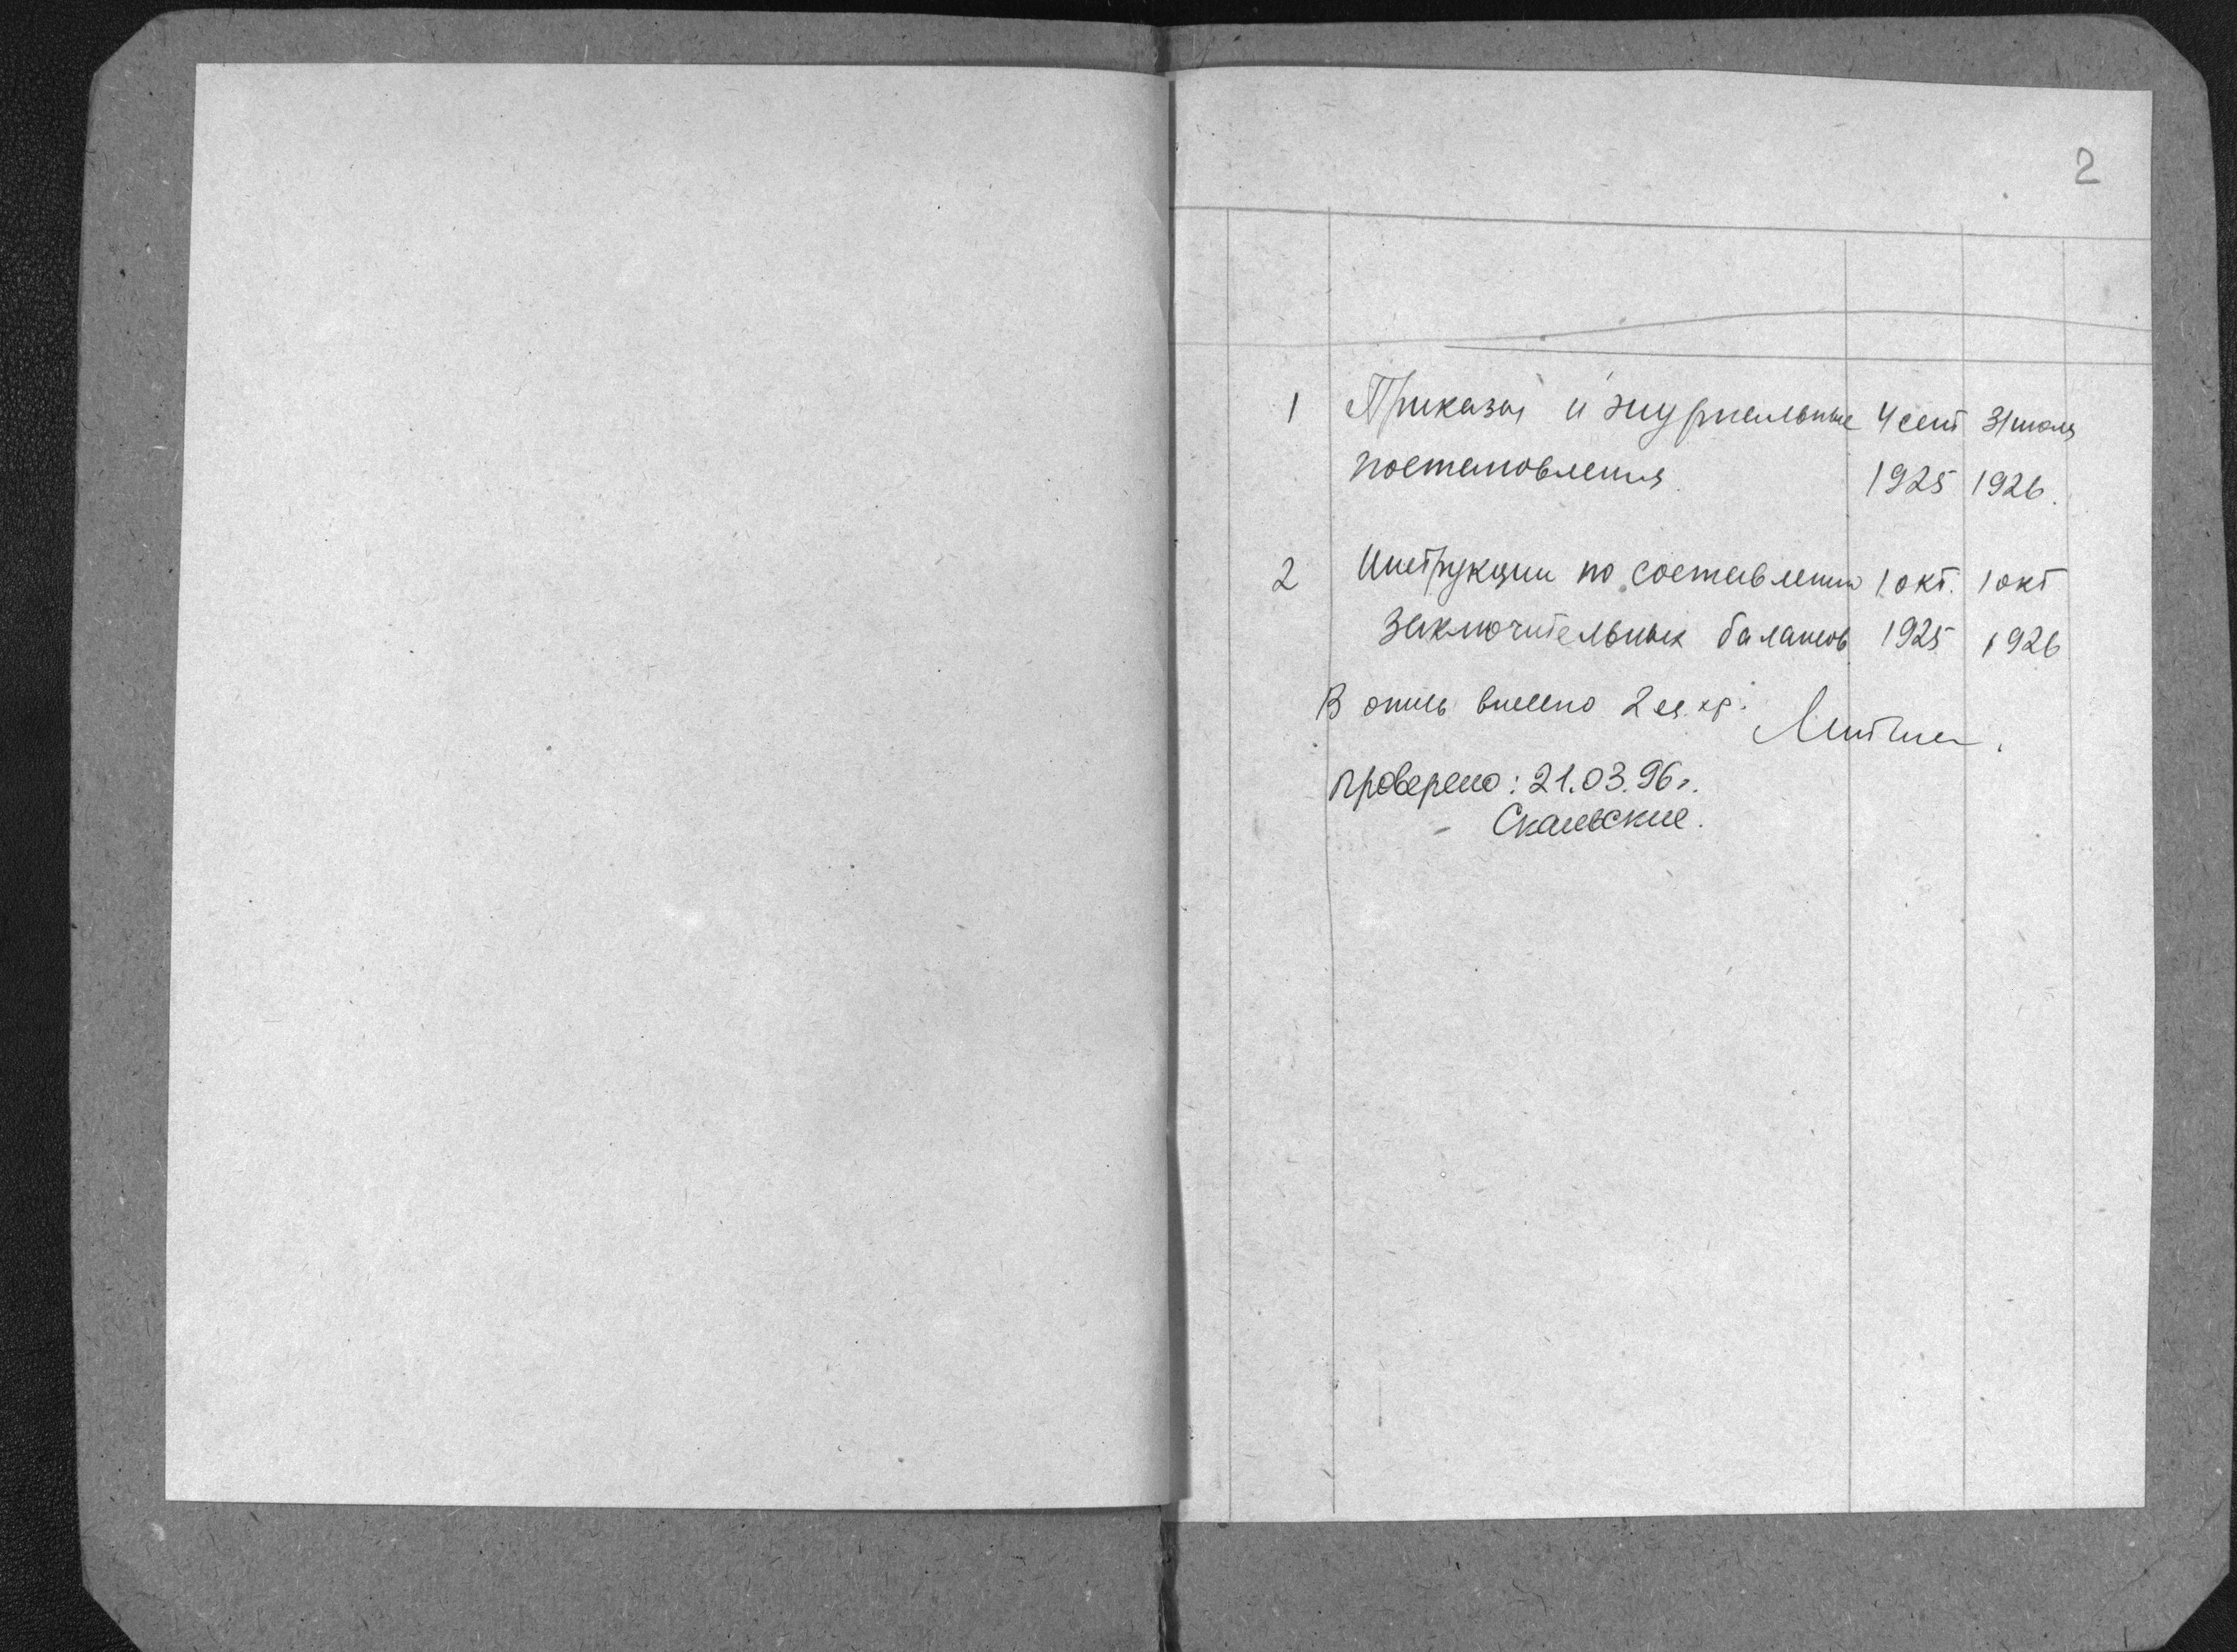 2
1 Приказы и журнальные 4 сент 31 июля
постановления 1925 1926.
2 Инструкции по составлению 1 окт. 1 окт
заключительных балансов 1925 1926
В опись внесено 2 ед. хр.
проверено: 21.03.96 г.